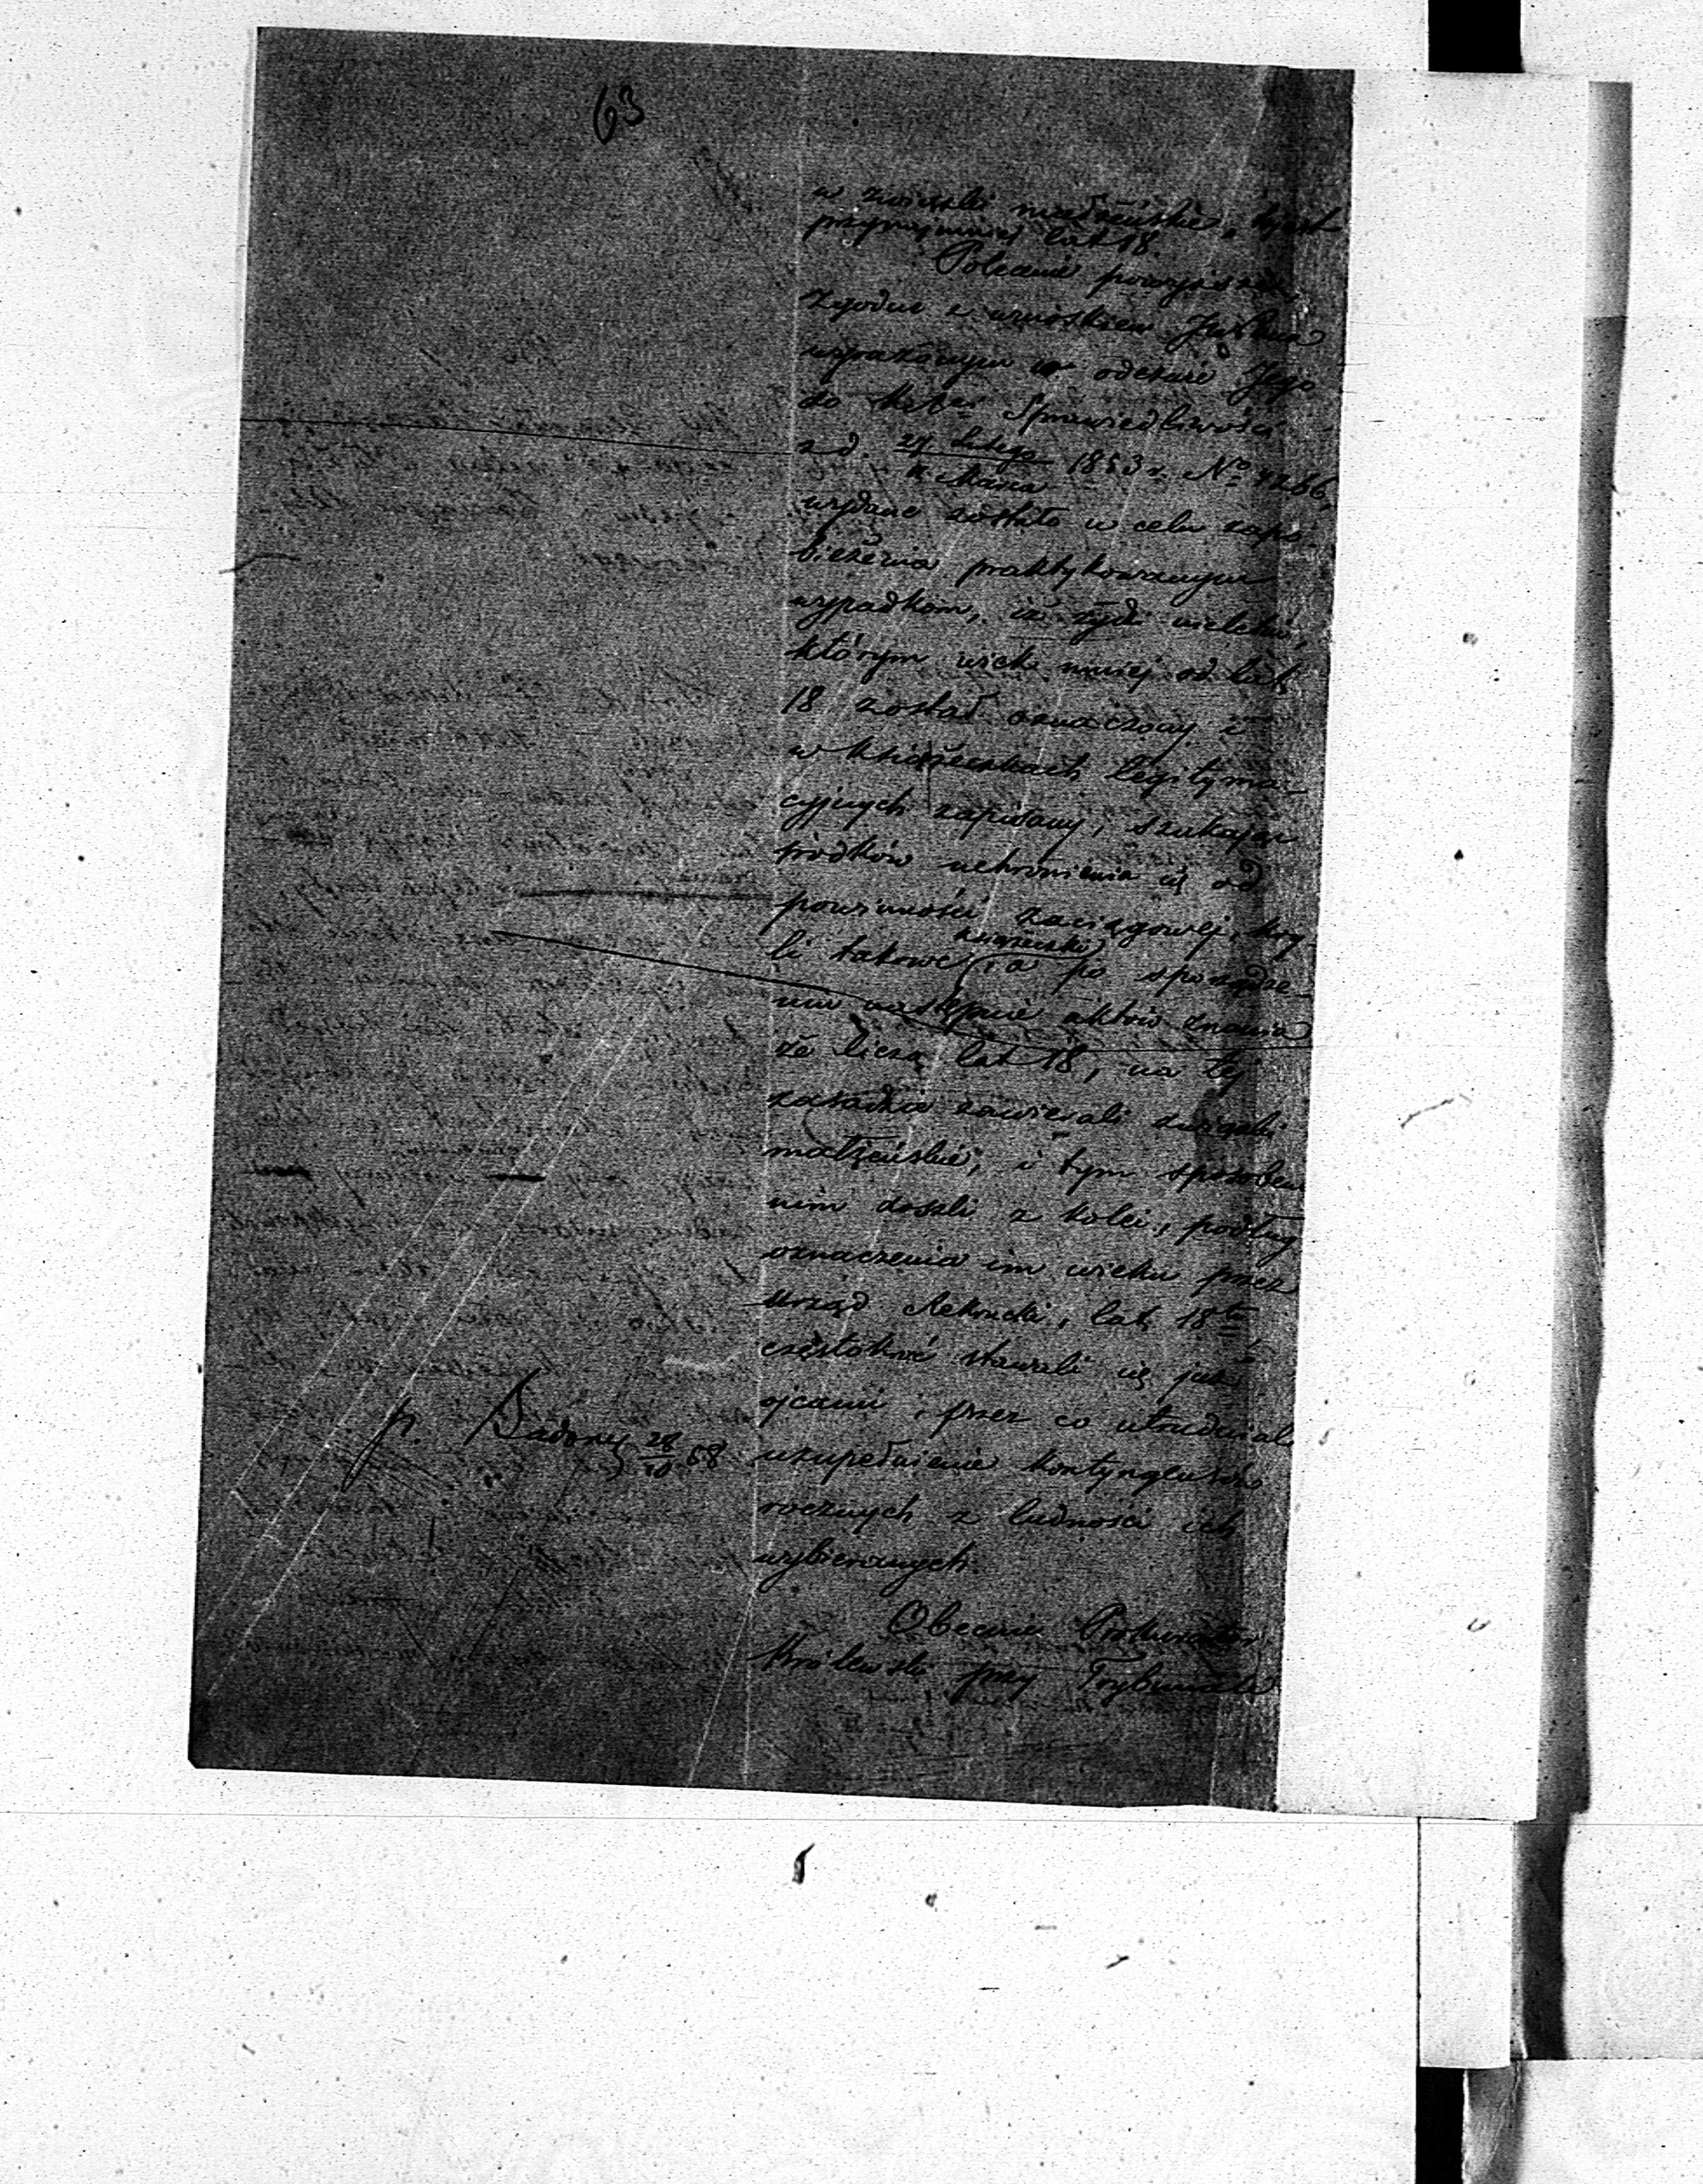 63
w związki małżeńskie, był
przynajmniej lat 18.
Polecenie powyższe,
zgodne z wnioskiem
wyrażonym w odezwie Jego
do Sprawiedliwości
z d. 27 Lutego 1853 r. No 4266,
Marca
wydane zostało w celu zapo-
bieżenia praktykowanym
wypadkom, iż żydzi nieletni,
którym wiek mniej od lat
18 został oznaczony i
w książeczkach legityma-
cyjnych zapisany, szukając
środków uchronienia się od
powinności zaciągowej,
li takowe książeczki, a po sporządze-
niu następnie aktów znania
że liczą lat 18, na tej
zasadzie zawierali związki
małżeńskie, i tym sposobem
nim doszli z kolei, podług
oznaczenia im wieku przez
Urząd Rekrucki, lat 18tu
częstokroć stawali się już
ojcami, przez co utrudniali
uzupełnienie kontyngensów
rocznych z ludności ich
wybieranych.
Obecnie Prokurator
Królewski przy Trybunale
p. 28/10 58